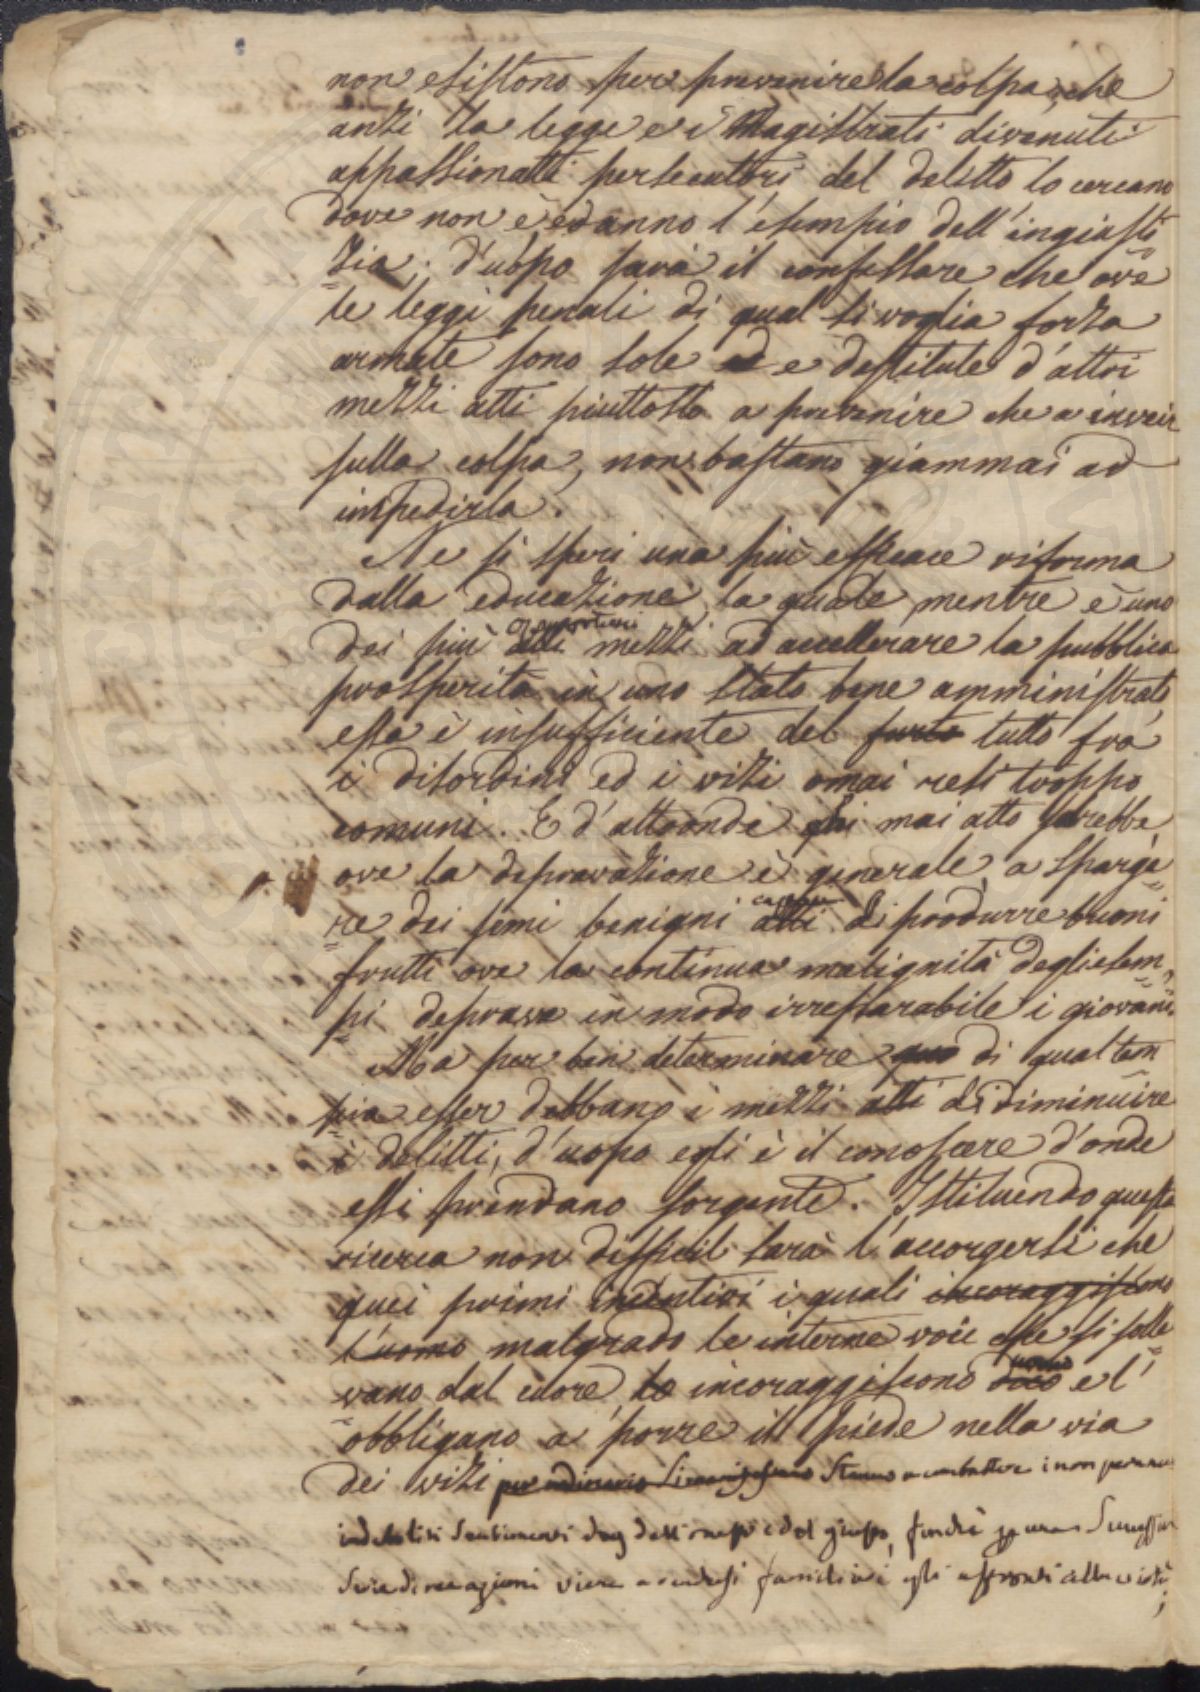 non esistono per prevenire la colpa, che
anzi la legge e i Magistrati divenuti
appassionatti persecuttori del delitto lo cercano
dove non è, e danno l'esempio dell'ingiusti
zia; d'uòpo sarà il confessare che ove
le leggi penali di qual si voglia forza
armate sono sole ed e destitute d'altri
mezzi atti piuttosto a prevenire che a inveir
sulla colpa, non bastano giammai ad
impedirla.
Ne si speri una più efficace riforma
dalla educazione, la quale mentre è uno
dei più atti mezzi ad accellerare la pubblica
prosperità in uno stato bene amministrato
essa è insufficiente del tutto frà
i disordini ed i vizi omai resi troppo
comuni. E d'altronde chi mai atto sarebbe,
ove la depravazione è generale, a sparge
re dei semi benigni capaci atti di produrre buoni
frutti ove la continua malignità degli esem
pi deprava in modo irreparabile i giovani.
Ma per ben determinare quo di qual tem
pra esser debbano i mezzi atti di diminuire
i delitti, d'uopo egli è il conoscere d'onde
essi prendano sorgente. Istituendo questa
ricerca non difficil sarà l'accorgersi che
quei primi incentivi i quali incoraggiscono
l'uomo malgrado le interne voci che si solle
vano dal cuore, lo incoraggiscono uomo e l'
obbligano a porre il piede nella via
dei vizi a combattere i non per anco
indeboliti sentimenti dell'onesto e del giusto, finchè per una successiva
serie di reazioni viene a rendersi familiari gli affronti alla virtù;